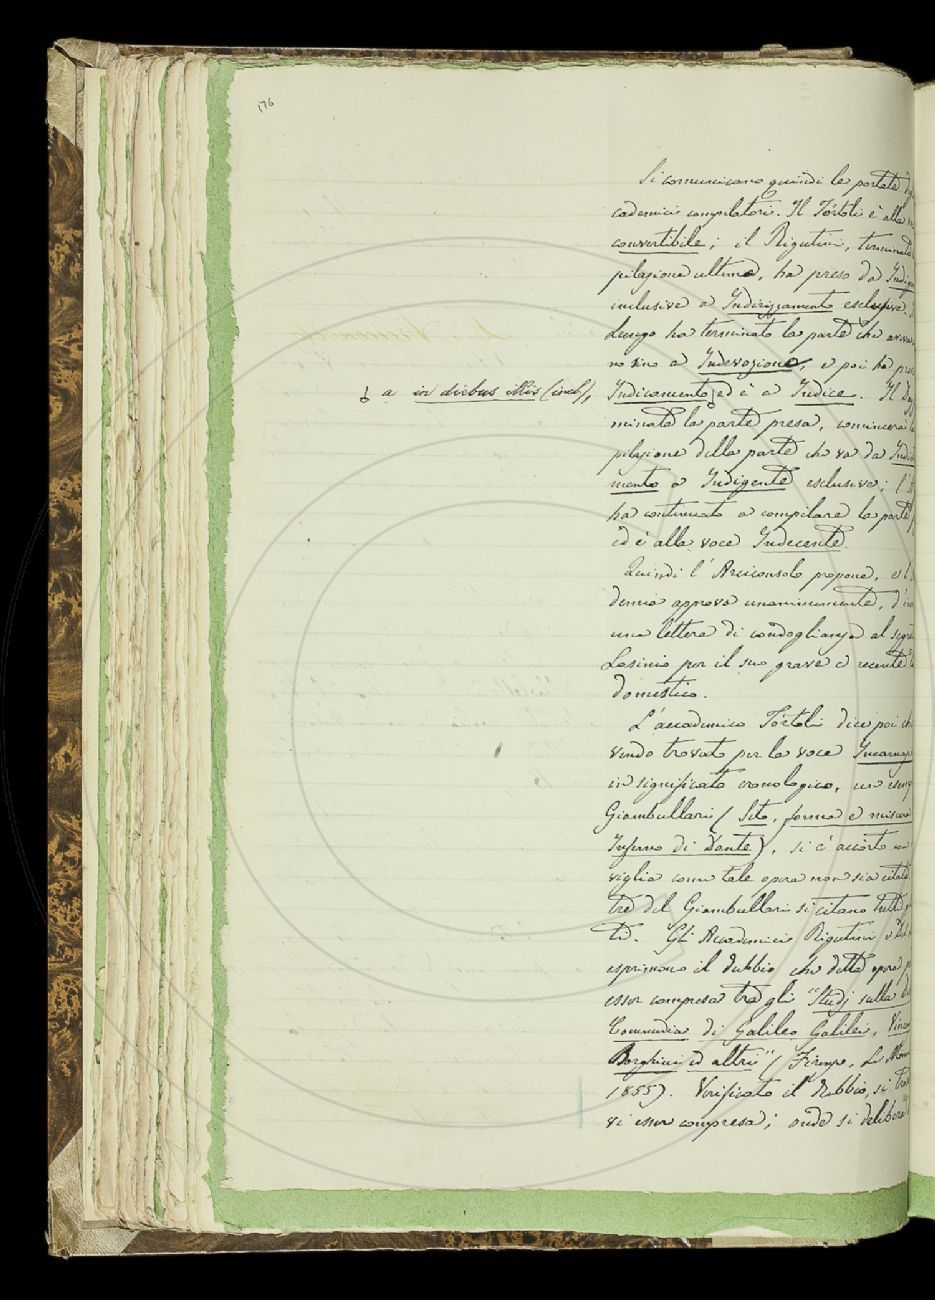 176
Si comunicano quindi le portate
cademici compilatori. Il Tórtoli è alla
convertibile; il Rigutini, terminata
pilazione ultima, ha preso da
inclusive a Indirizzamento esclusive.
Lungo ha terminato la parte che aveva
no sino a Indevozione, e poi ha preso
a in diebus illis (incl),
Indicamento ed è a Indice. Il
minata la parte presa, comincerà
pilazione della parte che va da
mento a Indigente esclusive;
ha continuato a compilare la parte
ed è alla voce Indecente.
Quindi l'Arciconsolo propone, e
demia approva unanimemente,
una lettera di condoglianza al
Lasinio per il suo grave e recente
domestico.
L'accademico Tórtoli dice poi
vendo trovato per la voce
in significato cronologico, un
Giambullari (Sito, forma e misura
Inferno di Dante), si è accorto con
viglia come tale opera non sia citata
tre del Giambullari si citano tutte
ti. Gli Accademici Rigutini e
esprimono il dubbio che detta opera
esser compresa tra gli "Studj sulla
Commedia di Galileo Galilei,
Borghini ed altri" (Firenze, Le
1855). Verificato il dubbio, si
vi esser compresa; onde si delibera